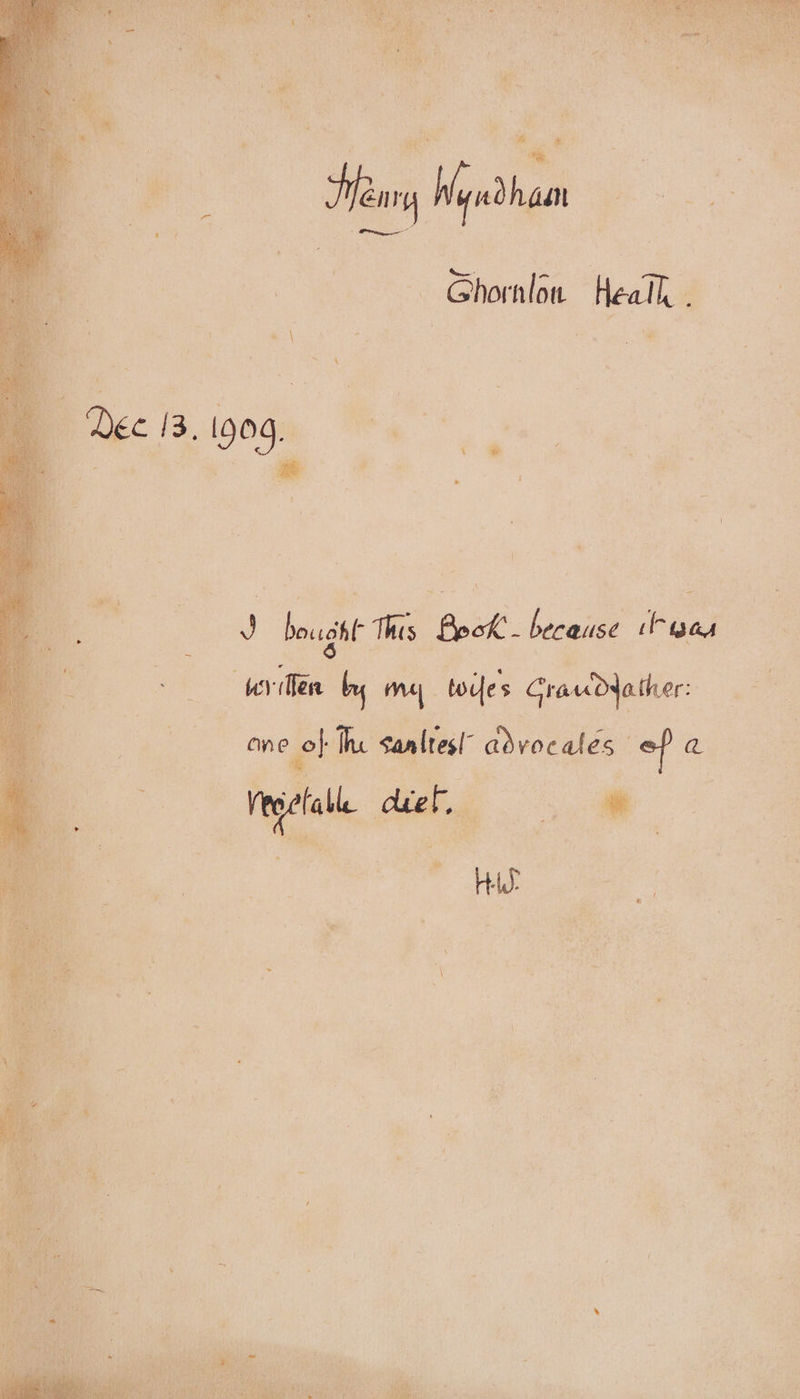 Henry Wyndham
Thornton Heath.
Dec 13. 1909.
I bought This Book - because it was
written by my wifes Grandfather:
one of The earliest advocates of a
Vegetable diet.
H.W.